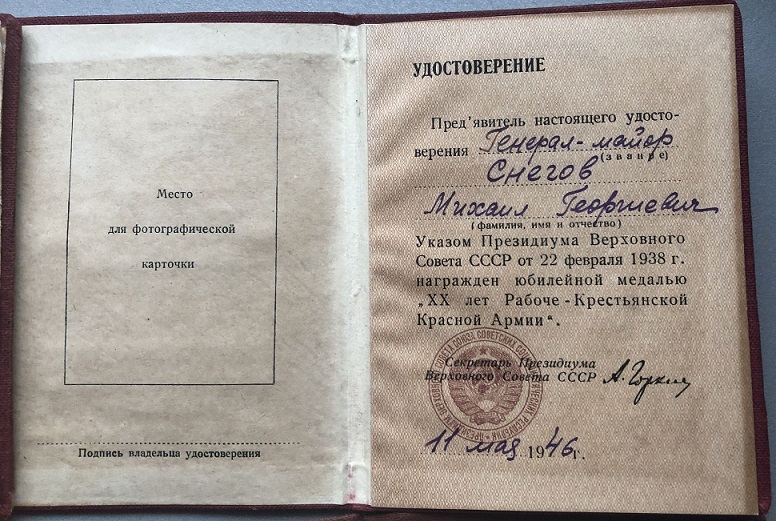 Место
для фотографической
карточки
Подпись владельца удостоверения
УДОСТОВЕРЕНИЕ
Пред'явитель настоящего удосто-
верения Генерал-майор
(звание)
Снегов
Михаил Георгиевич
(фамилия, имя и отчество)
Указом Президиума Верховного
Совета СССР от 22 февраля 1938 г.
награжден юбилейной медалью
„XX лет Рабоче-Крестьянской
Красной Армии".
Секретарь Президиума
Верховного Совета СССР А. Горкин
11 мая 1946 г.